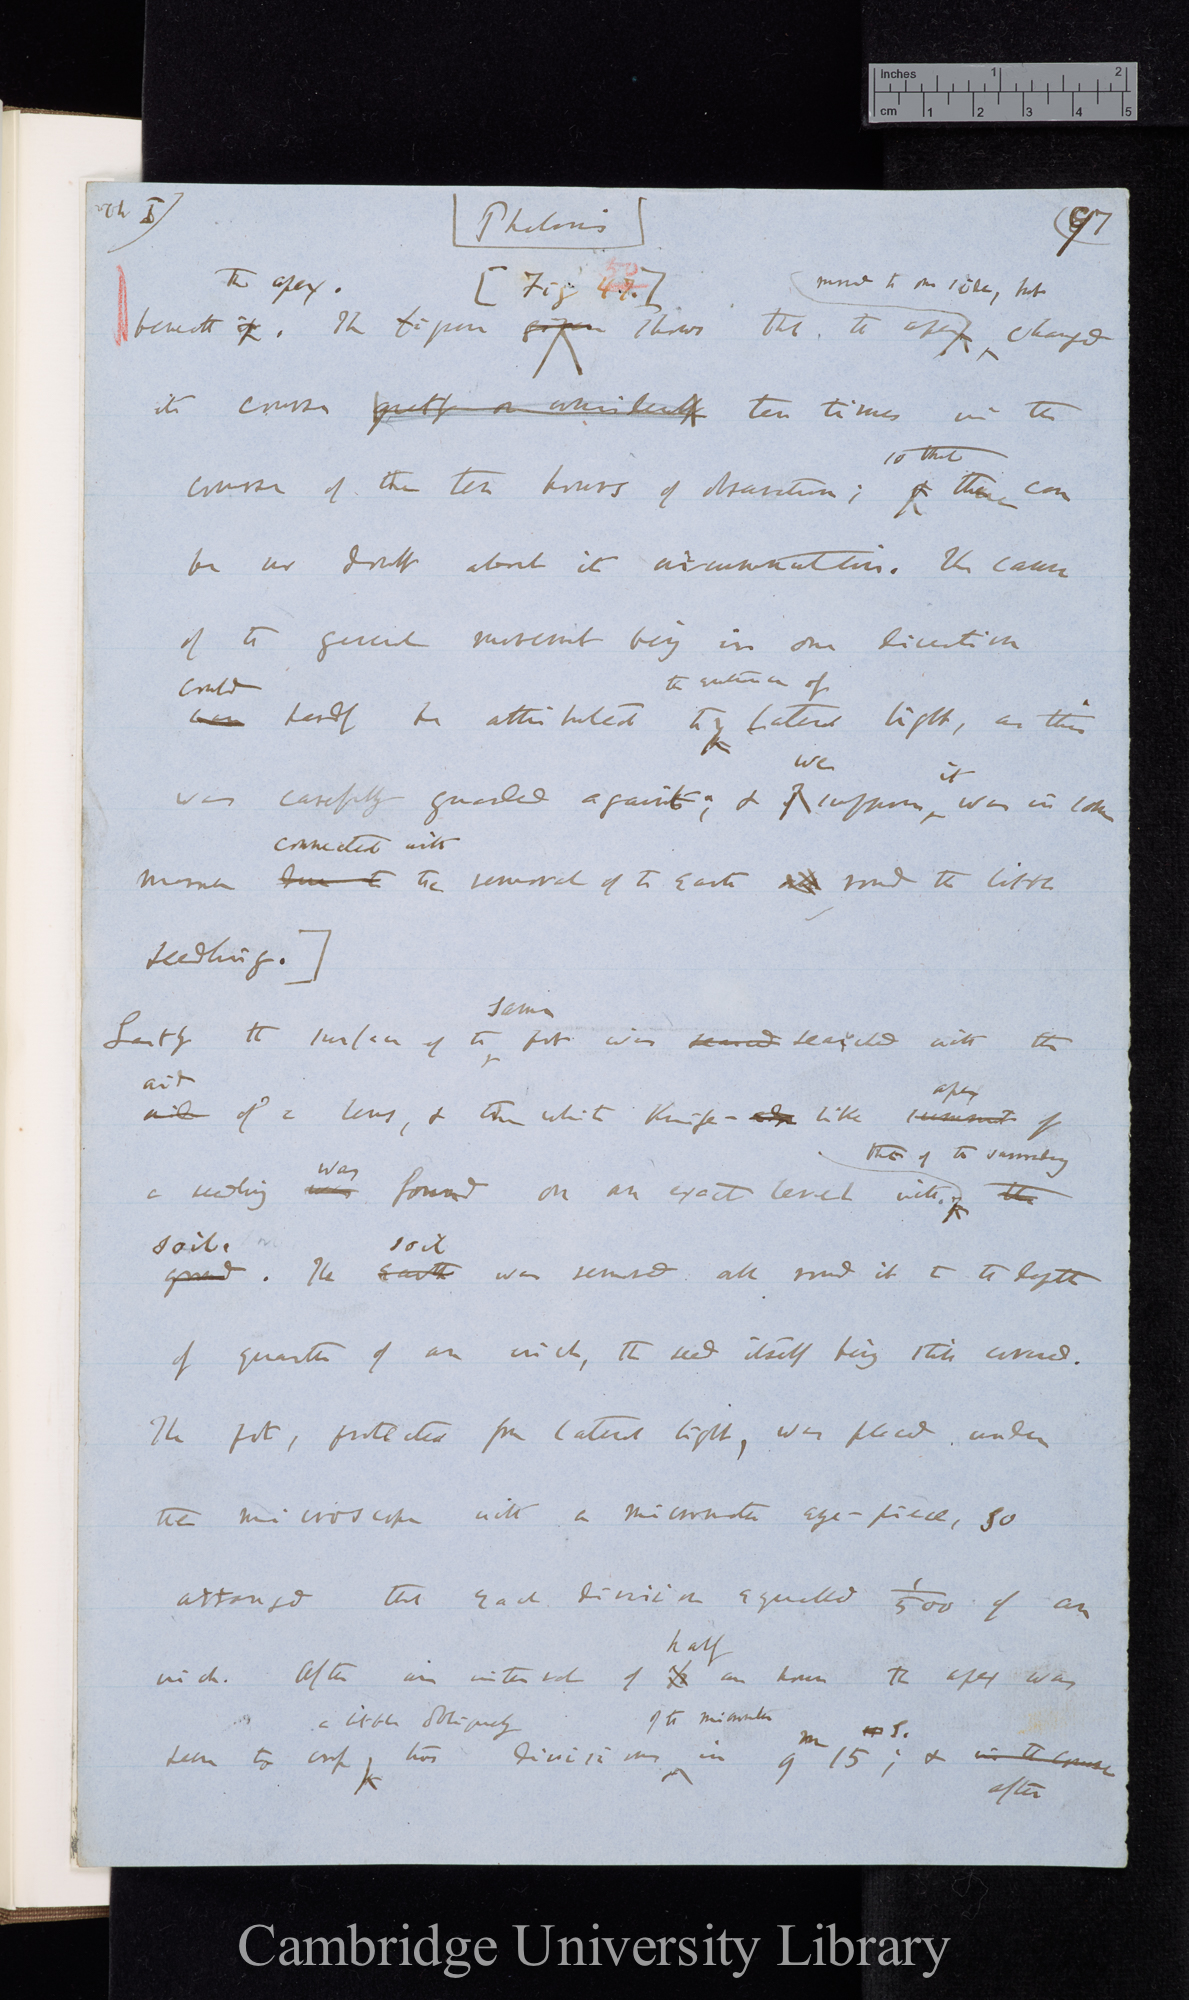 Inches 1 2
cm 1 2 3 4 5
ch I)
[Phalaris]
97
the apex. [Fig 47.] 50 moved to one side, but
beneath it. The figure given shows that the apex changed
its course greatly or considerably ten times in the
so that
course of the ten hours of observation; & there can
be no doubt about its circumnutation. The cause
of the general movement being in one direction
could the entrance of
can hardly be attributed to lateral light, as this
we it
was carefully guarded against; & I suppose was in some
connected with
manner due to the removal of the earth round the little
seedling.]
same
Lastly the surface of the pot was searched with the
aid apex
of a lens, & the white knife-like summit of
was that of the surrounding
a seedling was found on an exact level with the
soil. soil
ground. The earth was removed all round it to the depth
of quarter of an inch, the seed itself being still covered.
The pot, protected from lateral light, was placed under
the microscope with a micrometer eye-piece, so
arranged that each division equalled 1/500 of an
half
inch. After an interval of an hour the apex was
a little obliquely of the micrometer
seen to cross two divisions in 9m 15s; & in the course
after
Cambridge University Library